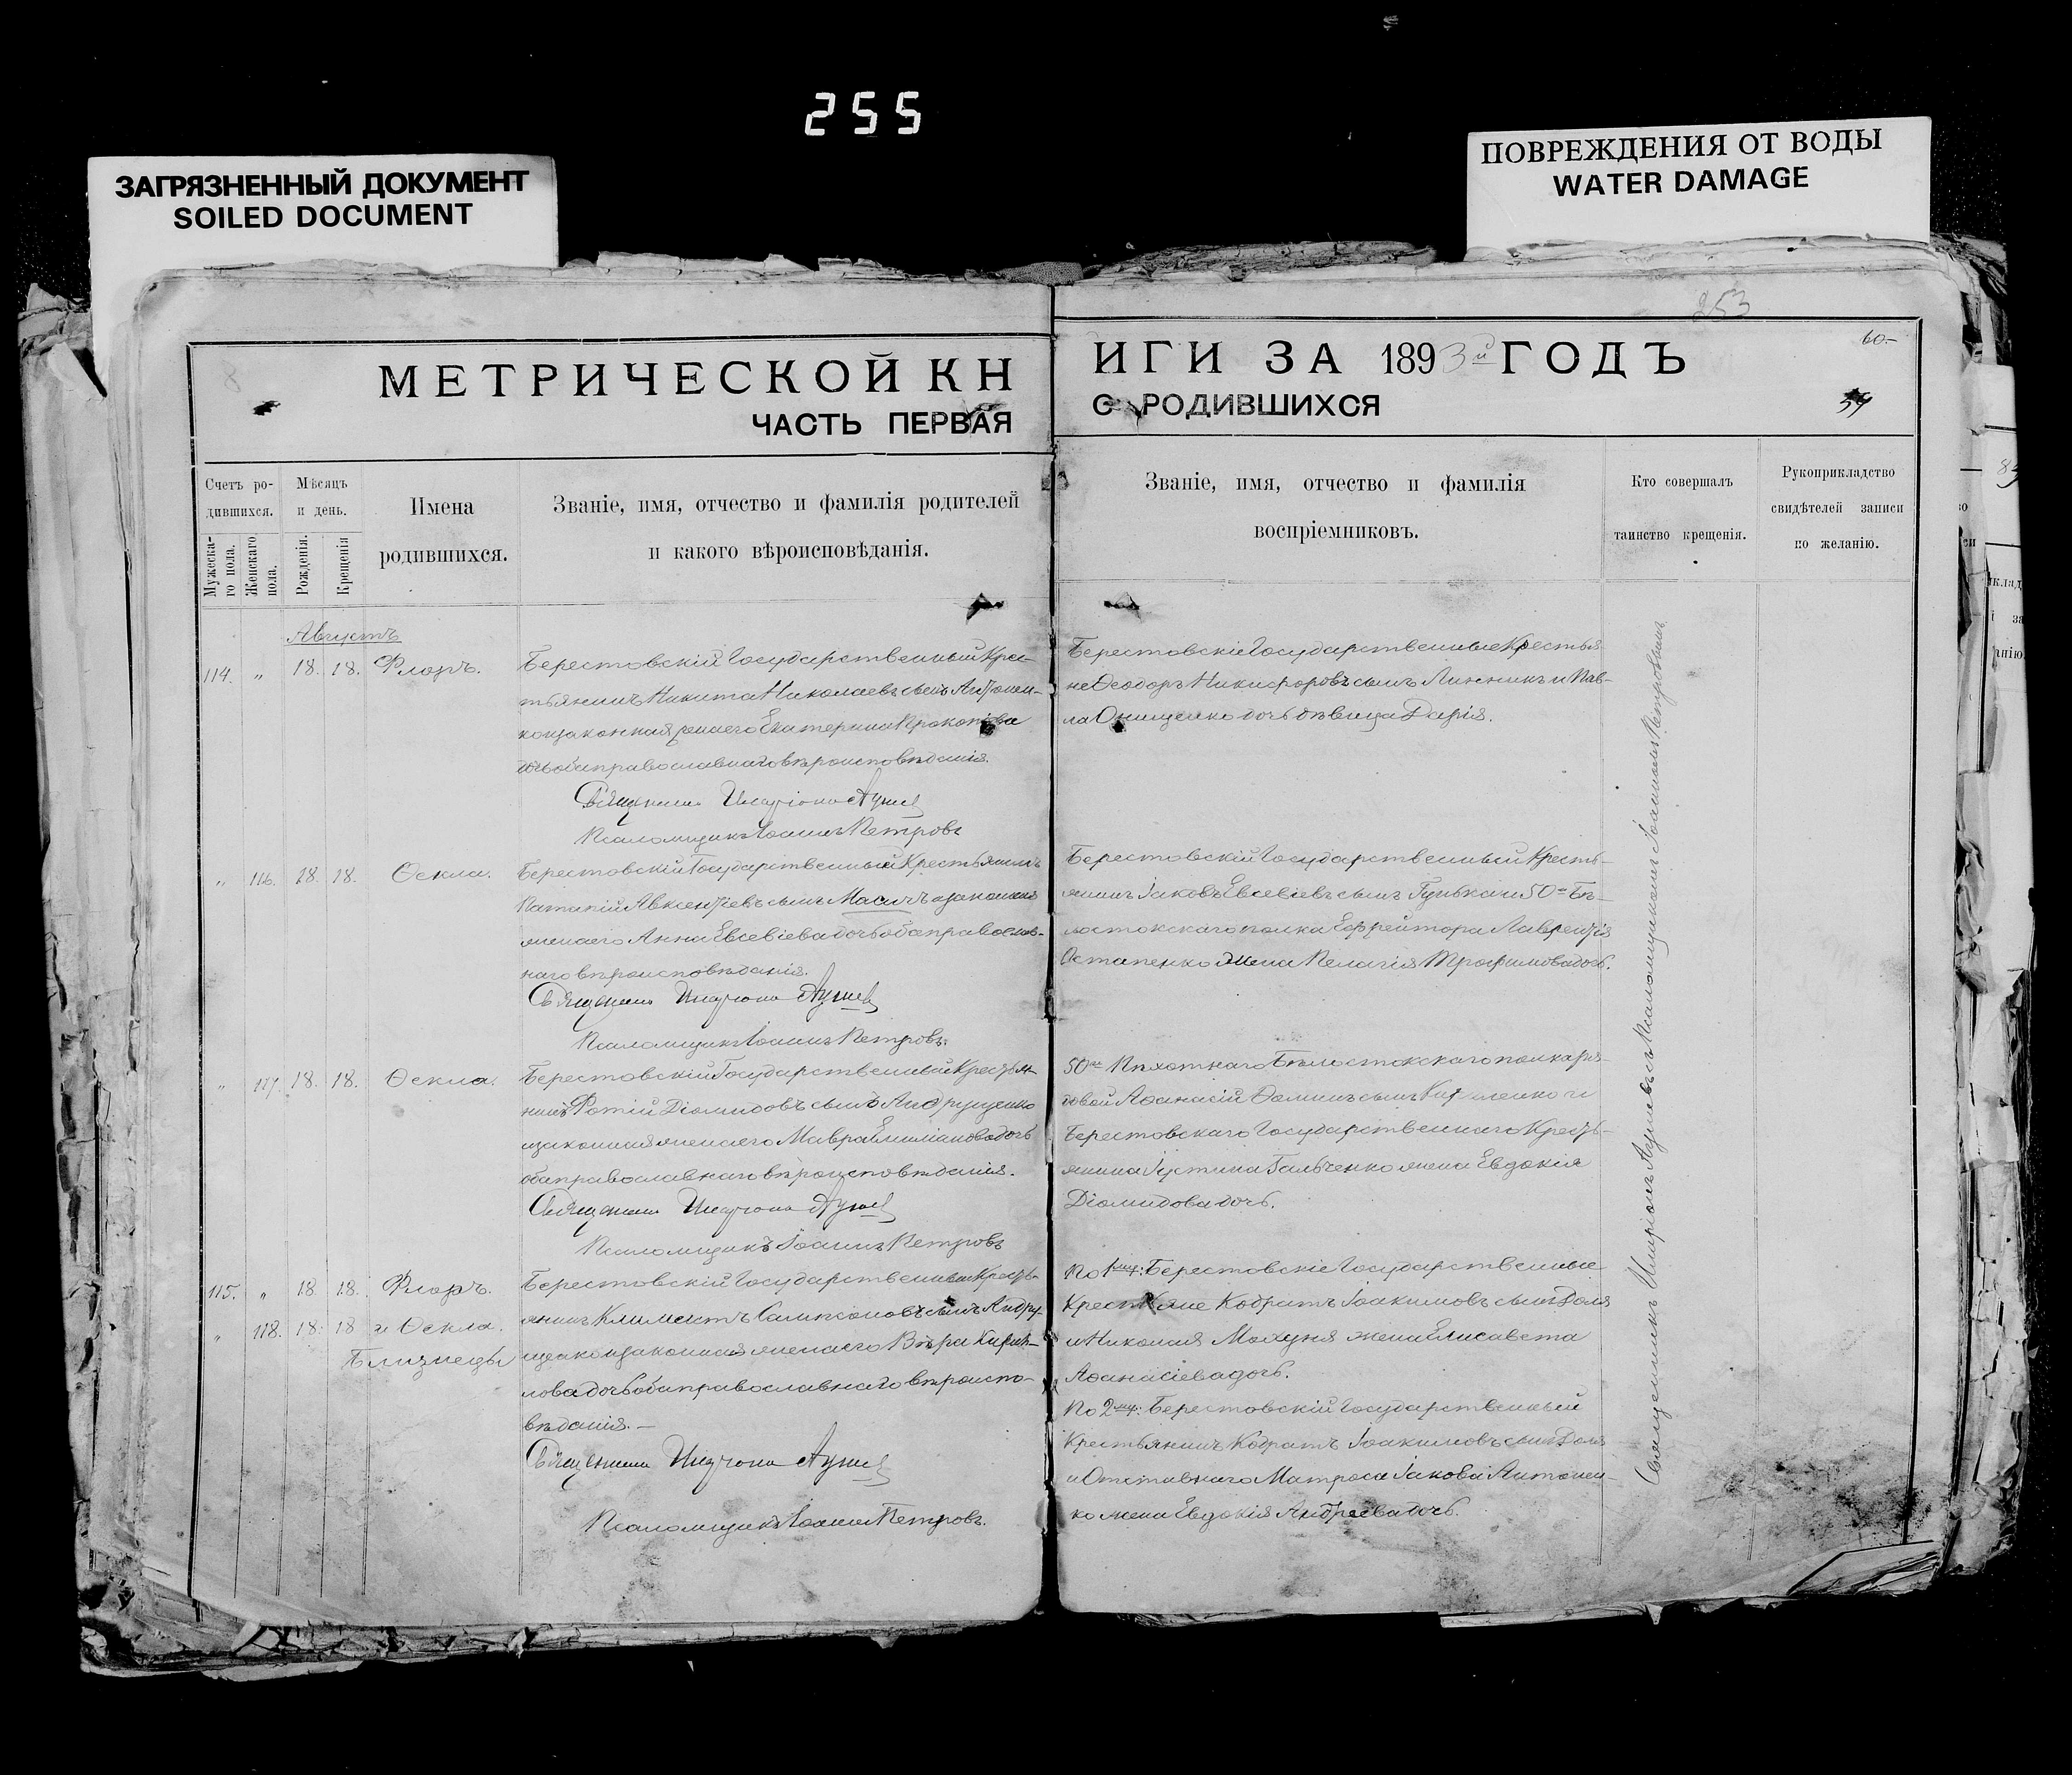 255
ЗАГРЯЗНЕННЫЙ ДОКУМЕНТ
SOILED DOCUMENT
ПОВРЕЖДЕНИЯ ОТ ВОДЫ
WATER DAMAGE
253
60.-
8
МЕТРИЧЕСКОЙ КН
ЧАСТЬ ПЕРВАЯ
ИГИ ЗА 1893й ГОДЪ
О РОДИВШИХСЯ
59
Счетъ ро-
дившихся.
Мужеска-
го пола.
Женскаго
пола.
Мѣсяцъ
и день.
Рожденія.
Крещенія
Имена
родившихся.
Званіе, имя, отчество и фамилія родителей
и какого вѣроисповѣданія.
Званіе, имя, отчество и фамилія
воспріемниковъ.
Кто совершалъ
таинство крещенія.
Рукоприкладство
свидѣтелей записи
по желанію.
Августъ
114. " 18. 18. Флоръ.
Берестовскій Государственный Крес-
тьянинъ Никита Николаевъ сынъ Антонен-
ко и законная жена его Екатерина Прокопіева
дочь оба православнаго вѣроисповѣданія.
Священникъ Иларіонъ
Псаломщикъ Іоаннъ Петровъ
Берестовскіе Государственные Крестья
не Ѳеодоръ Никифоровъ сынъ Линникъ и Пав-
ла Онищенко дочь дѣвица Дарія.
" 116. 18. 18. Ѳекла.
Берестовскій Государственный Крестьянинъ
Авксентіевъ сынъ и законная
жена его Анна Евсевіева дочь оба православ-
наго вѣроисповѣданія.
Священникъ Иларіонъ
Псаломщикъ Іоаннъ Петровъ.
Берестовскій Государственный Кресть-
янинъ Іаковъ Евсевіевъ сынъ Гунька и 50го Бѣ-
лостокскаго полка Ефрейтора Лаврентія
Остапенко жена Пелагія Трофимова дочь.
" 117. 18. 18. Ѳекла.
Берестовскій Государственный Крестья
нинъ Фотій Діомидовъ сынъ Андрущенко
и законная жена его Мавра Емиліанова дочь
оба православнаго вѣроисповѣданія.
Священникъ Иларіонъ
Псаломщикъ Іоаннъ Петровъ
50го Пѣхотнаго Бѣлостокскаго полка ря-
довой Аѳанасій сынъ и
Берестовскаго Государственнаго Кресть-
янина Іустина Гальченко жена Евдокія
Діомидова дочь.
115. " 18. 18. Флоръ.
" 118. 18. 18 и Ѳекла.
Близнецы
Берестовскій Государственный Кресть-
янинъ Климентъ Сампсоновъ сынъ Андру-
щенко и законная жена его Вѣра Кирил-
лова дочь оба православнаго вѣроиспо-
вѣданія.-
Священникъ Иларіонъ
Псаломщикъ Іоаннъ Петровъ.
По 1му: Берестовскіе Государственные
Крестьяне Кодратъ Іоакимовъ сынъ Доля
и Николая жена Елисавета
Аѳанасіева дочь.
По 2му: Берестовскій Государственный
Крестьянинъ Кодратъ Іоакимовъ сынъ Доля
и Отставнаго Матроса Іакова Антонен-
ко жена Евдокія Андреева дочь.
Священникъ Иларіонъ съ Псаломщикомъ Іоанномъ Петровымъ